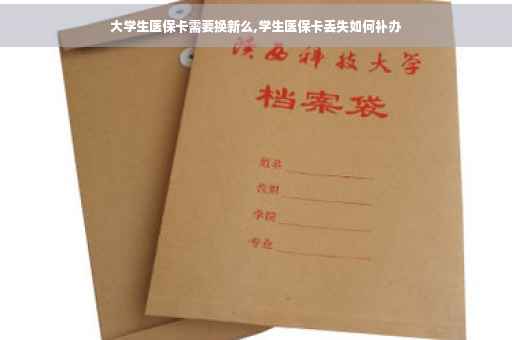 大学生医保卡需要换新么,学生医保卡丢失如何补办
陕西科技大学
档案袋
学院
专业